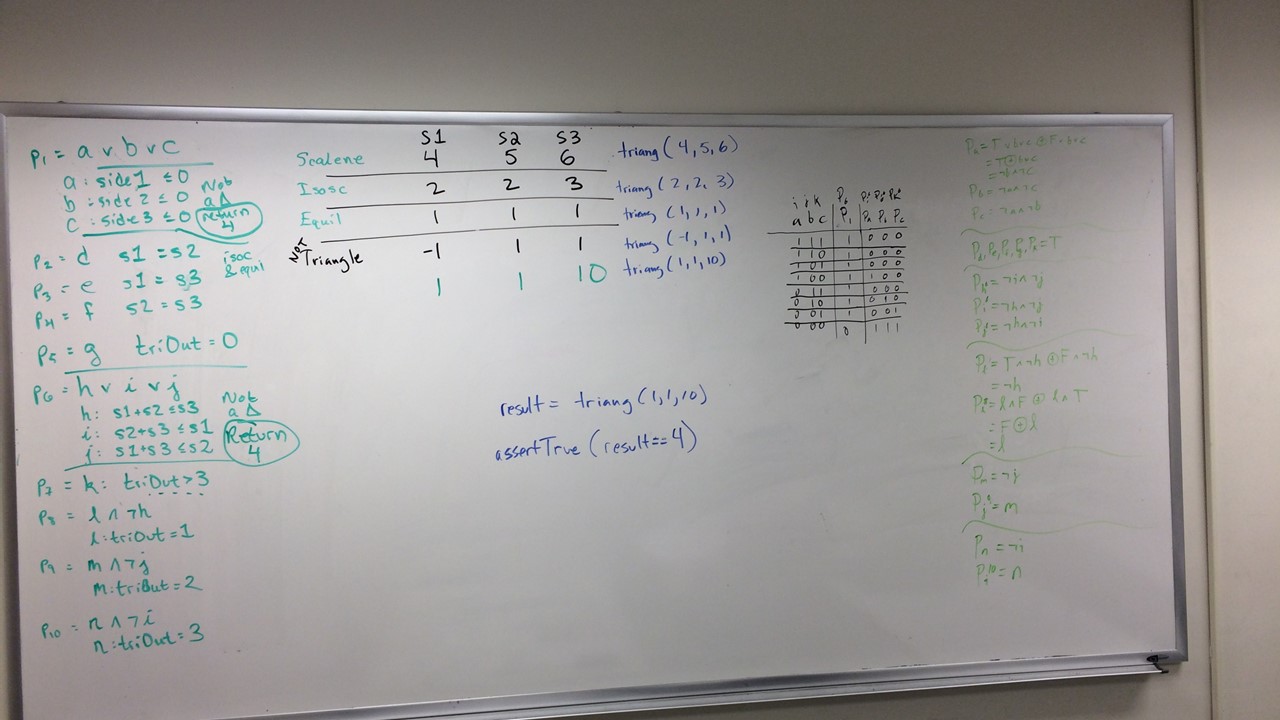 P1 = a v b v c
a: side1 ≤ 0
b: side2 ≤ 0
c: side3 ≤ 0
Not
a Δ
return
4
P2 = d s1 = s2
P3 = e s1 = s3
P4 = f s2 = s3
isoc
& equi
P5 = g triOut = 0
P6 = h v i v j
h: s1+s2 ≤ s3
i: s2+s3 ≤ s1
j: s1+s3 ≤ s2
Not
a Δ
Return
4
P7 = k: triOut > 3
P8 = l ∧ ¬h
l: triOut = 1
P9 = m ∧ ¬j
m: triOut = 2
P10 = n ∧ ¬i
n: triOut = 3
S1 S2 S3
Scalene 4 5 6 triang(4,5,6)
Isosc 2 2 3 triang(2,2,3)
Equil 1 1 1 triang(1,1,1)
Not Triangle -1 1 1 triang(-1,1,1)
1 1 10 triang(1,1,10)
result = triang(1,1,10)
assertTrue(result==4)
i j k
a b c P1 Pa Pb Pc
1 1 1 1 0 0 0
1 1 0 1 0 0 0
1 0 1 1 0 0 0
1 0 0 1 1 0 0
0 1 1 1 0 0 0
0 1 0 1 0 1 0
0 0 1 1 0 0 1
0 0 0 0 1 1 1
Pa = T v b v c ⊕ F v b v c
= ¬b ∧ ¬c
Pb = ¬a ∧ ¬c
Pc = ¬a ∧ ¬b
= T
= ¬i ∧ ¬j
= ¬h ∧ ¬j
= ¬h ∧ ¬i
= T ∧ ¬h ⊕ F ∧ ¬h
= ¬h
= l ∧ F ⊕ l ∧ T
= F ⊕ l
= l
Pm = ¬j
= m
Pn = ¬i
= n